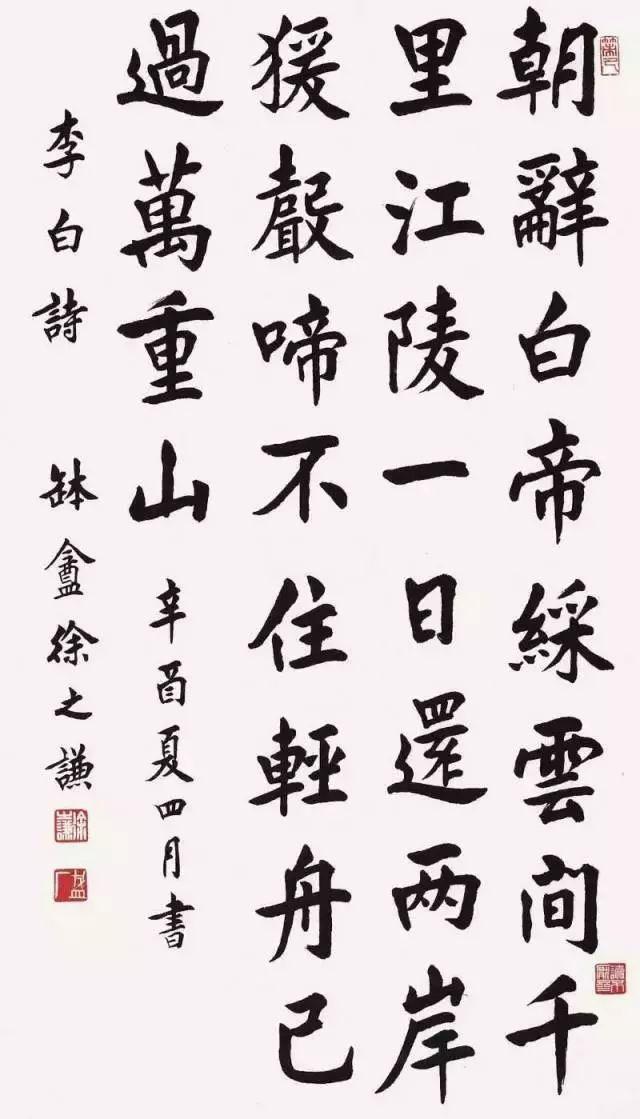 朝辭白帝綵雲間千
里江陵一日還两岸
猨聲啼不住輕舟已
過萬重山 辛酉夏四月書
李白詩 缽盦徐之謙